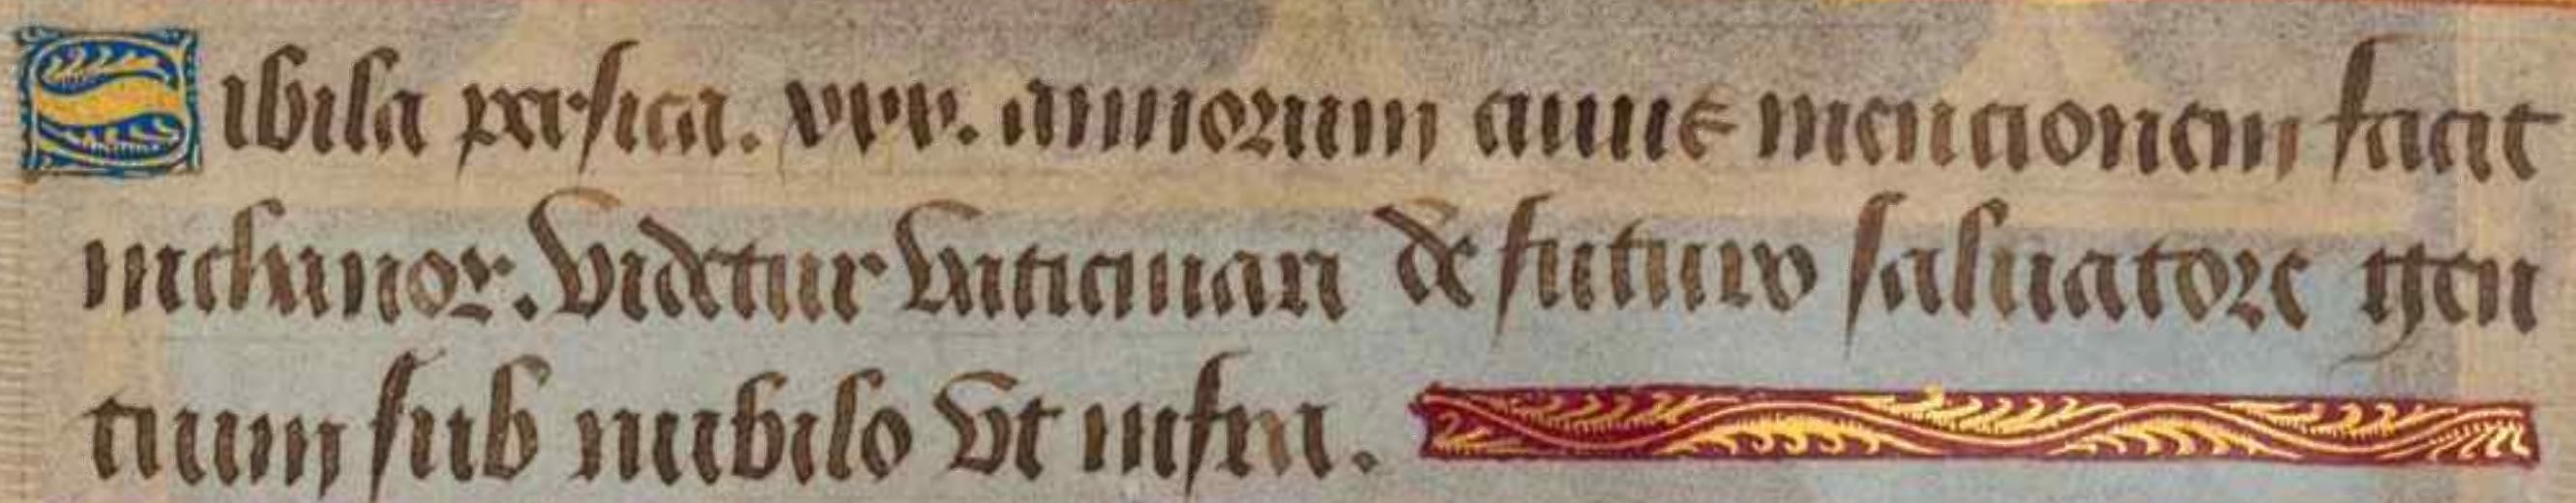 Sibila persica. xxx. annorum cuius mencionem facit
nichanor. Videtur vaticinari de futuro saluatore gen
cium sub nubilo Vt infra.